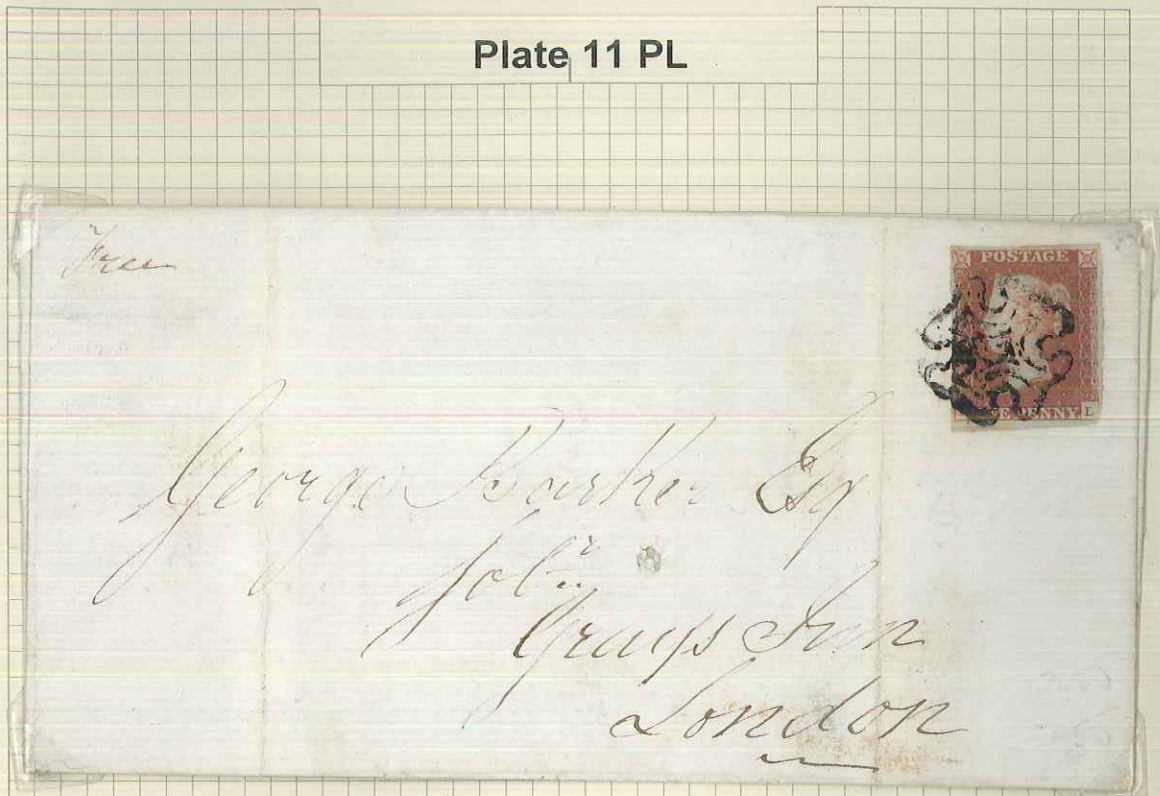 Plate 11 PL
Free
POSTAGE
PENNY L
George Barker Esq
Solr
Grays Inn
London